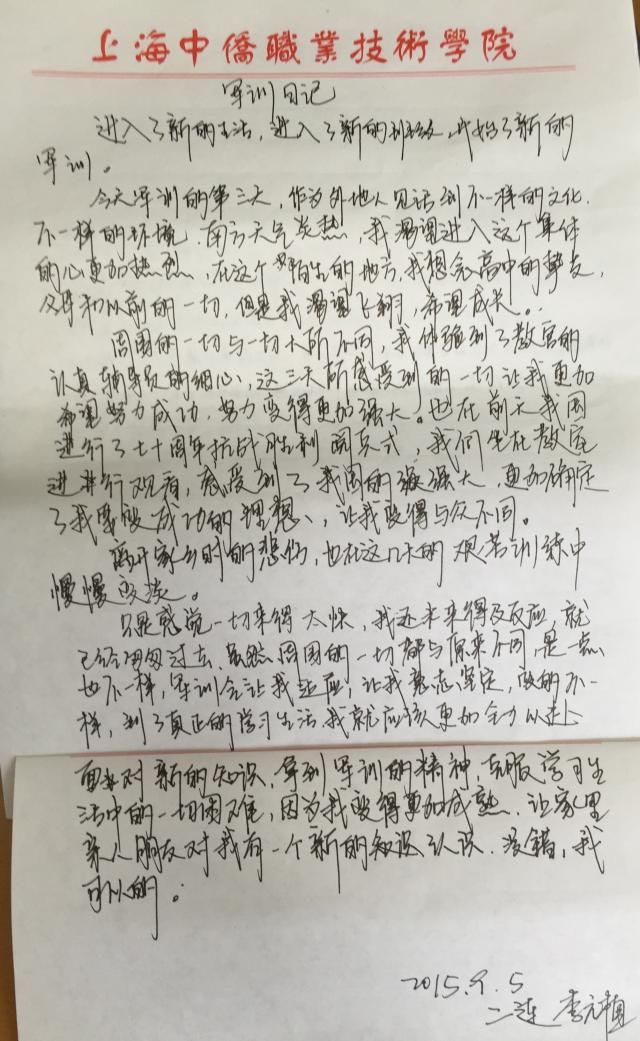 上海中僑職業技術學院
军训日记
进入了新的生活，进入了新的，开始了新的
军训。
今天军训的第三天，作为外地人见识到不一样的文化.
不一样的环境.南方天气炎热，我渴望进入这个集体
的心更加热烈，在这个陌生的地方，我想念高中的挚友，
父母和以前的一切，但是我渴望飞翔，希望成长。
周围的一切与一切大所不同，我体验到了教官的
认真，辅导员的细心，这三天所感受到的一切让我更加
希望努力成功，努力变得更加强大。也在前天我国
进行了七十周年抗战胜利阅兵式，我们坐在教室
进行观看，感受到了我国的强大，更加确定
了我要成功的理想，让我变得与众不同。
离开家乡时的悲伤，也在这几天的艰苦训练中
慢慢变淡。
只是感觉一切来得太快，我还未来得及反应，就
已经匆匆过去，虽然周围的一切都与原来不同，是一点
也不一样，军训会让我适应，让我意志坚定，变的不一
样，到了真正的学习生活，我就应该更加全力以赴
面对新的知识，拿到军训的精神，克服学习生
活中的一切困难，因为我变得更加成熟.让家里
亲人朋友对我有一个新的认识.没错，我
可以的。
2015.9.5
二连 李元